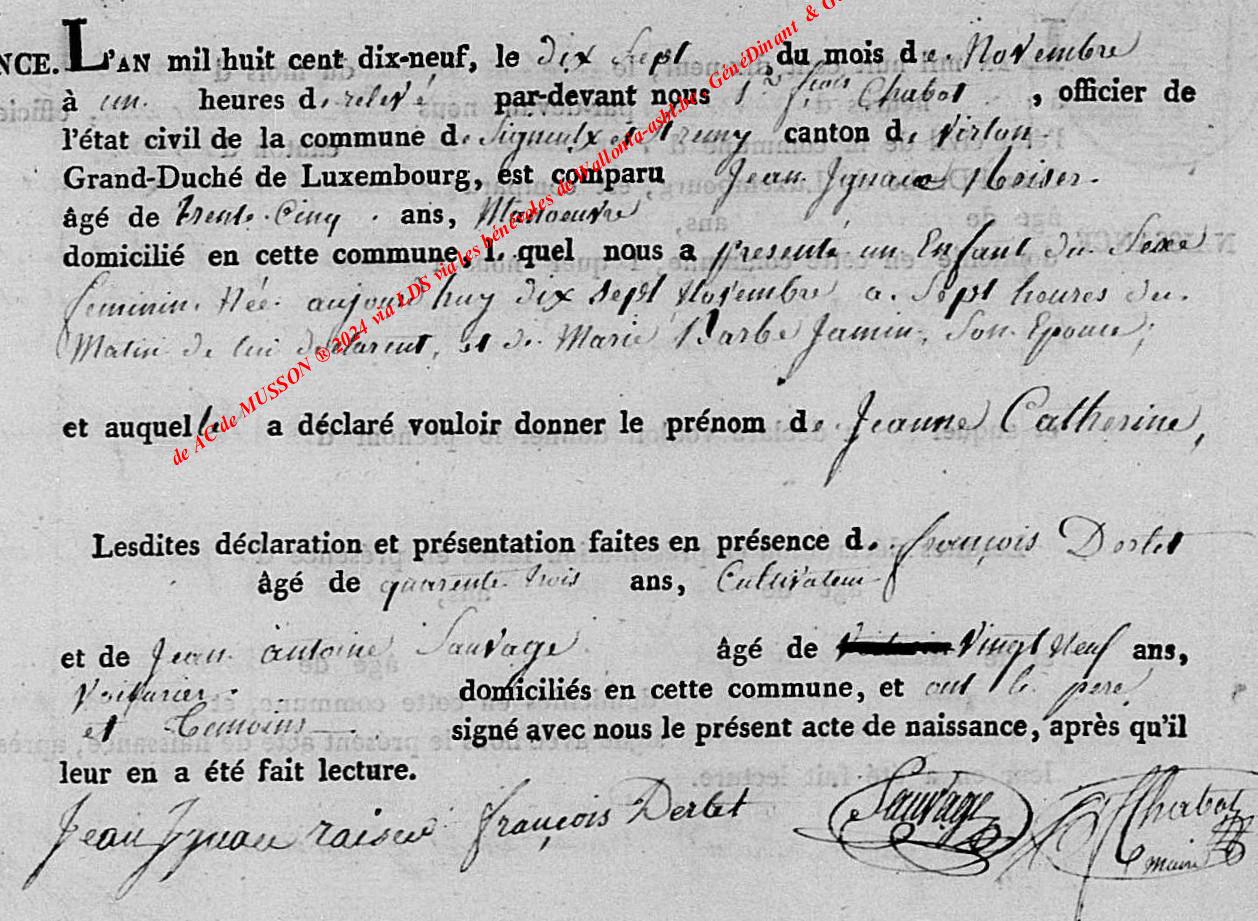 NCE. L'AN mil huit cent dix-neuf, le dix sept du mois de Novembre
à un heures de relevé par-devant nous Sr. fcois Chabot, officier de
l'état civil de la commune de Signeulx et canton de Virton
Grand-Duché de Luxembourg, est comparu Jean Ignace Reiser
âgé de trente Cinq ans, Manoeuvre
domicilié en cette commune, le quel nous a presenté un Enfant du Sexe
feminin Née aujourd'huy dix sept Novembre a Sept heures du
Matin de lui declarent, et de Marie Barbe Jamin, Son Epouse,
et auquel le a déclaré vouloir donner le prénom de Jeanne Catherine,
Lesdites déclaration et présentation faites en présence de françois Derlet
âgé de quarente trois ans, Cultivateur
et de Jean antoine Sauvage âgé de Vingt Neuf ans,
Voiturier domiciliés en cette commune, et ont le pere
et Temoins signé avec nous le présent acte de naissance, après qu'il
leur en a été fait lecture.
Jean Ignace françois Derlet Sauvage Chabot
maire
de AC de MUSSON ® 2024 via LDS via les bénévoles de Wallonia-asbl.be, GénéDinant &